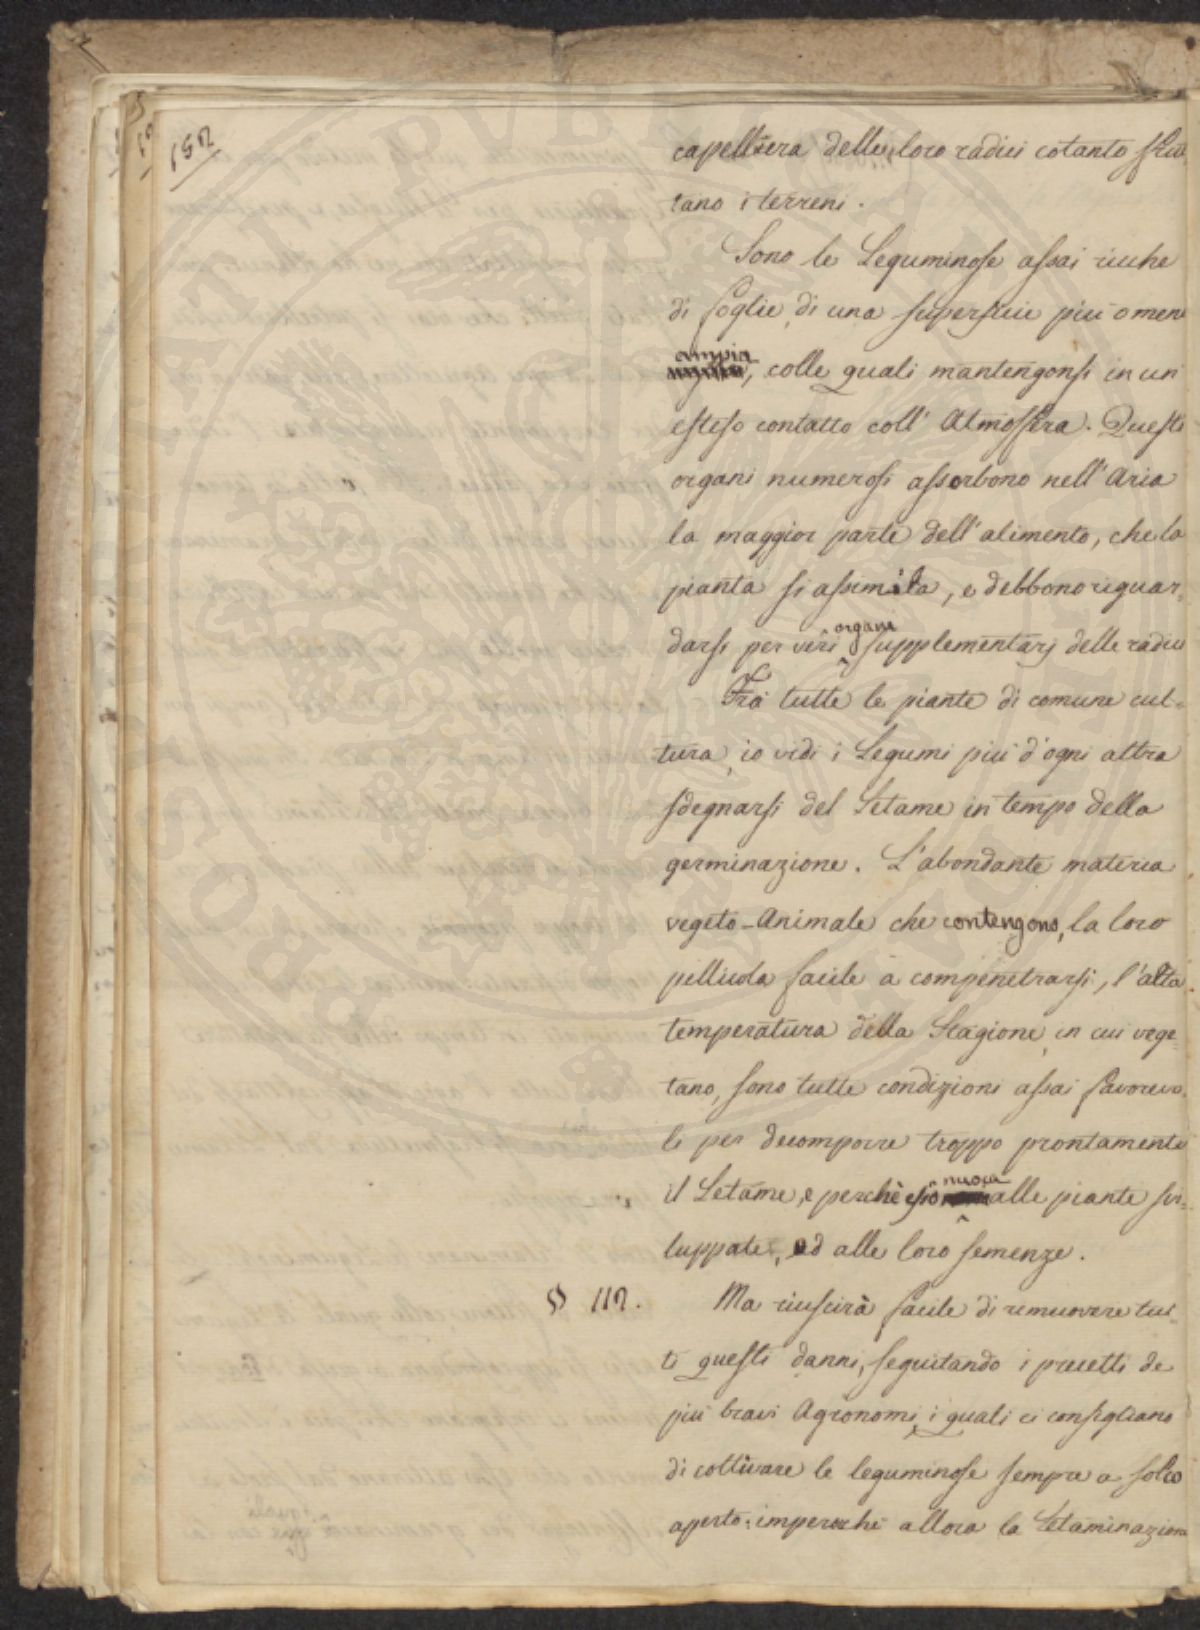 152
capelliera delle loro radici cotanto sfrut
tano i terreni.
Sono le Leguminose assai ricche
di foglie, di una superficie più o men
ampia, colle quali mantengonsi in un
esteso contatto coll' Atmosfera. Questi
organi numerosi assorbono nell' Aria
la maggior parte dell' alimento, che la
pianta si assimila, e debbono riguar-
darsi per veri organi supplementarj delle radici
Frà tutte le piante di comune cul-
tura, io vidi i Legumi più d'ogni altra
sdegnarsi del Letame in tempo della
germinazione. L'abondante materia
vegeto-Animale che contengono, la loro
pellicola facile a compenetrarsi, l'alta
temperatura della Stagione, in cui vege-
tano, sono tutte condizioni assai favorevo
li per decomporre troppo prontamente
il Letame, e perchè esso nuoca alle piante svi-
luppate, ed alle loro semenze.
§ 112. Ma riuscirà facile di rimuovere tut-
ti questi danni, seguitando i precetti de
più bravi Agronomi, i quali ci consigliano
di coltivare le leguminose sempre a solco
aperto: imperochè allora la Letaminazione